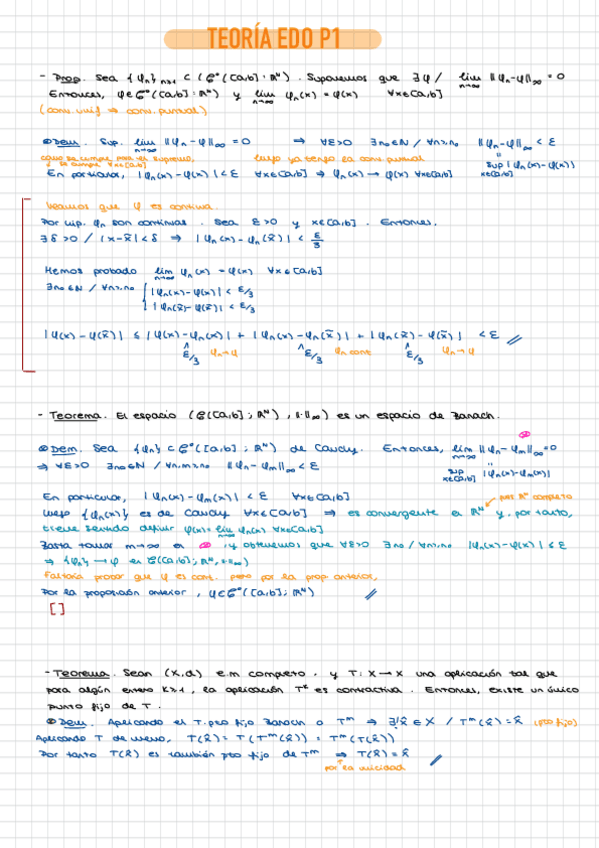 TEORÍA EDO P1
- Prop. Sea {φn}n≥1 ⊂ (C°([a,b]; ℝᴺ). Suponemos que ∃φ / lim n→∞ ||φn-φ||∞ = 0
Entonces, φ∈C°([a,b]; ℝᴺ) y lim n→∞ φn(x) = φ(x) ∀x∈[a,b]
(conv. unif ⇒ conv. puntual)
Dem. Sup. lim n→∞ ||φn-φ||∞ = 0 ⇒ ∀ε>0 ∃n0∈ℕ / ∀n≥n0 ||φn-φ||∞ < ε
como se cumple para el supremo, se cumple ∀x∈[a,b] luego ya tengo la conv. puntual
" sup x∈[a,b] |φn(x)-φ(x)|
En particular, |φn(x)-φ(x)| < ε ∀x∈[a,b] ⇒ φn(x) → φ(x) ∀x∈[a,b]
Veamos que φ es continua.
Por hip. φn son continuas. Sea ε>0 y x∈[a,b]. Entonces,
∃δ>0 / |x-x̃|<δ ⇒ |φn(x)-φn(x̃)| < ε/3
Hemos probado lim n→∞ φn(x) = φ(x) ∀x∈[a,b]
∃n0∈ℕ / ∀n≥n0 { |φn(x)-φ(x)| < ε/3
|φn(x̃)-φ(x̃)| < ε/3
|φ(x)-φ(x̃)| ≤ |φ(x)-φn(x)| + |φn(x)-φn(x̃)| + |φn(x̃)-φ(x̃)| < ε //
^ ε/3 φn→φ ^ ε/3 φn cont. ^ ε/3 φn→φ
- Teorema. El espacio (C([a,b]; ℝᴺ), ||·||∞) es un espacio de Banach.
Dem. Sea {φn} ⊂ C°([a,b]; ℝᴺ) de Cauchy. Entonces, lim n→∞ ||φn-φm||∞ = 0
⇒ ∀ε>0 ∃n0∈ℕ / ∀n,m≥n0 ||φn-φm||∞ < ε
" sup x∈[a,b] |φn(x)-φm(x)|
En particular, |φn(x)-φm(x)| < ε ∀x∈[a,b]
por ℝᴺ completo
luego {φn(x)} es de Cauchy ∀x∈[a,b] ⇒ es convergente en ℝᴺ y, por tanto,
tiene sentido definir φ(x) = lim n→∞ φn(x) ∀x∈[a,b]
Basta tomar m→∞ en ⊛, y obtenemos que ∀ε>0 ∃n0 / ∀n≥n0 |φn(x)-φ(x)| ≤ ε
⇒ {φn} → φ en (C([a,b]; ℝᴺ, ||·||∞)
Faltaría probar que φ es cont. pero por la prop. anterior,
Por la proposición anterior, φ∈C°([a,b]; ℝᴺ) //
[]
- Teorema. Sean (X,d) e.m completo, y T: X → X una aplicación tal que
para algún entero k≥1, la aplicación Tᵏ es contractiva. Entonces, existe un único
punto fijo de T.
Dem. Aplicando el T. pto fijo Banach a Tᵐ ⇒ ∃!x̂ ∈ X / Tᵐ(x̂) = x̂ (pto fijo)
Aplicando T de nuevo, T(x̂) = T(Tᵐ(x̂)) = Tᵐ(T(x̂))
Por tanto T(x̂) es también pto fijo de Tᵐ ⇒ T(x̂) = x̂ //
por la unicidad